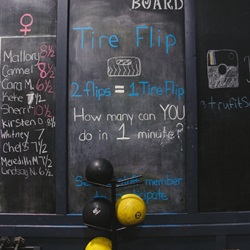 BOARD
Tire Flip
2 flips = 1 Tire Flip
How many can YOU
do in 1 minute?
member
♀
Mallory 8½
Carmel 8½
Cara M. 6½
Kate 7½
Sherri 10½
Kirsten D. 8½
Whitney 7
Chels 7½
Meredith M 7½
Lindsay N. 6½